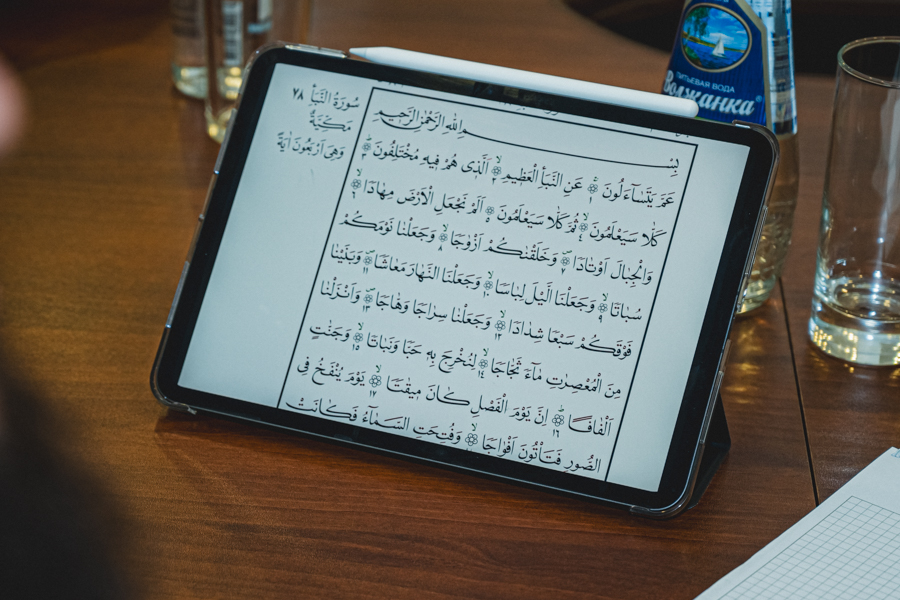 سُورَةُ النَّبَأِ ٧٨
مَكِّيَّةٌ
وَهِيَ اَرْبَعُونَ اٰيَةً
بِسْمِ اللّٰهِ الرَّحْمٰنِ الرَّحِيمِ
عَمَّ يَتَسَاءَلُونَ ١ عَنِ النَّبَأِ الْعَظِيمِ ٢ اَلَّذِى هُمْ فِيهِ مُخْتَلِفُونَ ٣
كَلَّا سَيَعْلَمُونَ ٤ ثُمَّ كَلَّا سَيَعْلَمُونَ ٥ اَلَمْ نَجْعَلِ الْاَرْضَ مِهَادًا ٦
وَالْجِبَالَ اَوْتَادًا ٧ وَخَلَقْنَاكُمْ اَزْوَاجًا ٨ وَجَعَلْنَا نَوْمَكُمْ
سُبَاتًا ٩ وَجَعَلْنَا الَّيْلَ لِبَاسًا ١٠ وَجَعَلْنَا النَّهَارَ مَعَاشًا ١١ وَبَنَيْنَا
فَوْقَكُمْ سَبْعًا شِدَادًا ١٢ وَجَعَلْنَا سِرَاجًا وَهَّاجًا ١٣ وَاَنْزَلْنَا
مِنَ الْمُعْصِرَاتِ مَاءً ثَجَّاجًا ١٤ لِنُخْرِجَ بِهِ حَبًّا وَنَبَاتًا ١٥ وَجَنَّاتٍ
اَلْفَافًا ١٦ اِنَّ يَوْمَ الْفَصْلِ كَانَ مِيقَاتًا ١٧ يَوْمَ يُنْفَخُ فِى
الصُّورِ فَتَأْتُونَ اَفْوَاجًا وَفُتِحَتِ السَّمَاءُ فَكَانَتْ
ПИТЬЕВАЯ ВОДА
Волжанка